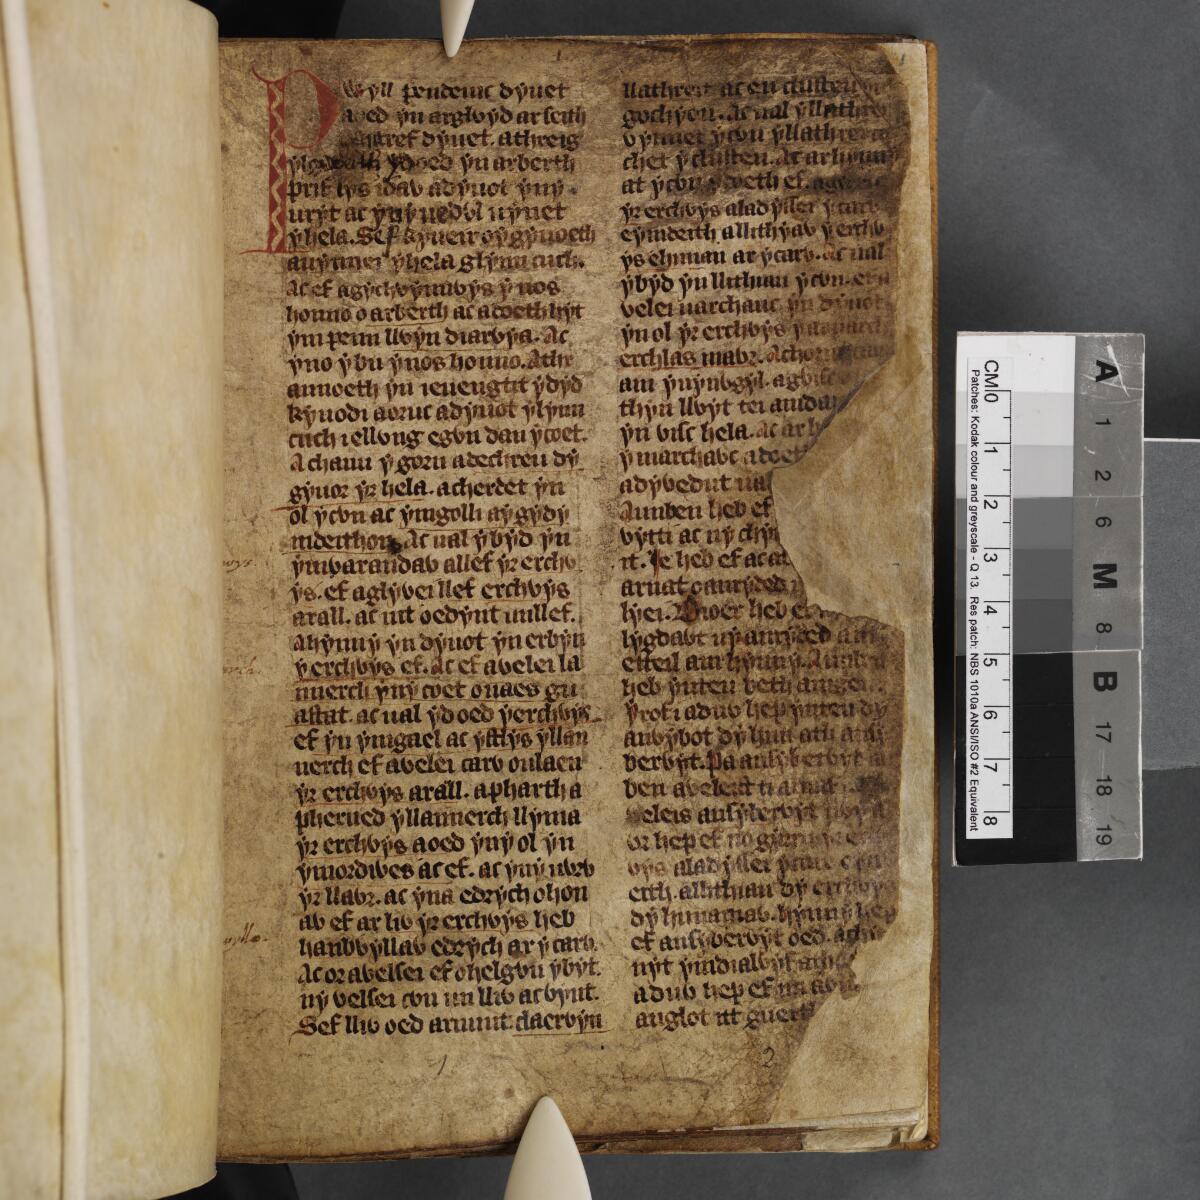 Pwyll pendeuic dyuet
a oed yn arglwyd ar seith
cantref dyuet. athreig
ylgweith ydoed yn arberth
prif lys idaw adyuot yny
uryt ac yny uedwl uynet
y hela. Sef kyueir oy gyuoeth
auynnei yhela glynn cuch.
Ac ef agychwynnwys ynos
honno o arberth ac adoeth hyt
ym penn llwyn diarwya. Ac
yno ybu ynos honno. Athr
annoeth yn ieuengtit ydyd
kyuodi aoruc adyuot ylynn
cuch iellwng egwn dan ycoet.
Achanu y gorn adechreu dy
gyuor yr hela. acherdet yn
ol ycwn ac ymgolli aygydy
mdeithon. Ac ual ybyd yn
ymwarandaw allef yr erchw
ys. ef aglywei llef erchwys
arall. ac nit oedynt unllef.
Ahynny yn dyuot yn erbyn
yerchwys ef. Ac ef awelei la
nnerch yny coet ouaes gu
astat. ac ual ydoed yerchwys
ef yn ymgael ac ystlys yllan
nerch ef awelei carw oulaen
yr erchwys arall. apharth a
pherued yllannerch llyma
yr erchwys aoed yny ol yn
ymordiwes ac ef. ac yny uwrw
yr llawr. ac yna edrych ohon
aw ef ar liw yr erchwys heb
hanbwyllaw edrych ar ycarw.
Ac or awelsei ef ohelgwn ybyt.
ny welsei cwn un lliw acwynt.
Sef lliw oed arnunt claerwyn
llathreit ac eu clusteu yn
gochyon. Ac ual yllathrei
wynnet ycwn yllathrei co
chet yclusteu. Ac ar hynny
at ycwn ydoeth ef. a
yr erchwys alad yssei ycarw
eymdeith allithyaw yerchw
ys ehunan ar ycarw. Ac ual
ybyd yn llithiau ycwn. ef a
welei uarchauc yn dyuot
yn ol yr erchwys yar uarch
erchlas mawr. Achorn
am yuynwgyl. agwisc
thyn llwyt tei amdan
yn wisc hela. Ac ar h
ymarchawc adoeth
adywedut ual
Aunben heb ef
wytti ac ny chy
it. Ie heb ef ac at
arnat oanryded
hyei. Dioer heb ef
lygdawt uy anryded am
etteil am hynny. Aunben
heb ynteu beth amgen.
yrof i aduw hep ynteu dy
anwybot dy hun ath ans
berwyt. Pa ansyberwyt a
ben aweleist ti arnaf i.
weleis ansyberwyt
or hep ef no gyrru yr erch
wys alad yssei ycarw e ym
eith. allithiau dy erchwys
dy hunarnaw. hynny hep
ef ansyberwyt oed. achy
nyt ymdialwyf
aduw hep ef mi awn
anglot it guerth
1
2
CM 0 1 2 3 4 5 6 7 8
Patches: Kodak colour and greyscale - Q 13. Res patch: NBS 1010a ANSI/ISO #2 Equivalent
A 1 2 6 M 8 B 17 18 19